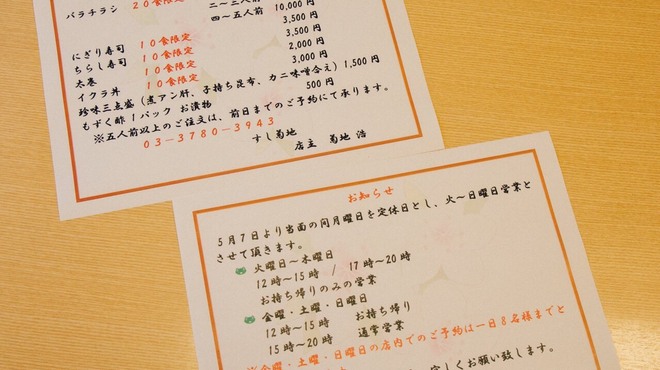 バラチラシ ２０食限定 二～三人前
四～五人前 10,000 円
にぎり寿司 １０食限定 3,500 円
ちらし寿司 １０食限定 3,500 円
太巻 １０食限定 2,000 円
イクラ丼 １０食限定 3,000 円
珍味三点盛（煮アン肝、子持ち昆布、カニ味噌合え）1,500 円
もずく酢 1 パック お漬物 500 円
※五人前以上のご注文は、前日までのご予約にて承ります。
０３－３７８０－３９４３
すし菊地
店主 菊地 浩
お知らせ
５月７日より当面の間月曜日を定休日とし、火～日曜日営業と
させて頂きます。
火曜日～木曜日
12 時～15 時 / 17 時～20 時
お持ち帰りのみの営業
金曜・土曜・日曜日
12 時～15 時 お持ち帰り
15 時～20 時 通常営業
※金曜・土曜・日曜日の店内でのご予約は一日８名様までと
しくお願い致します。